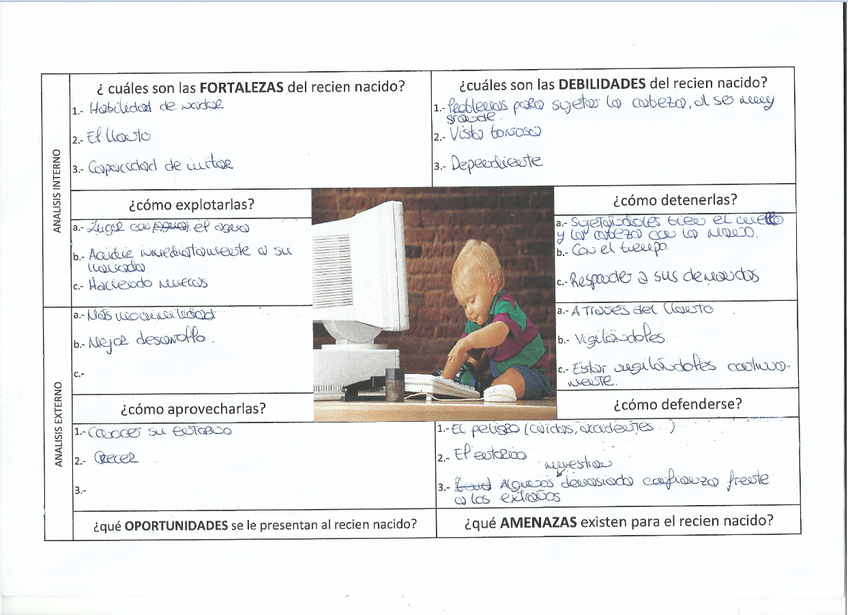 ¿ cuáles son las FORTALEZAS del recien nacido?
1.- Habilidad de nadar
2.- El llanto
3.- Capacidad de imitar
¿cuáles son las DEBILIDADES del recien nacido?
1.- Problemas para sujetar la cabeza, al ser muy
grande.
2.- Vista borrosa
3.- Dependiente
ANALISIS INTERNO
¿cómo explotarlas?
a.- Jugar con el agua
b.- Acudir inmediatamente a su
llamada
c.- Haciendo muecas
¿cómo detenerlas?
a.- Sujetándoles bien el cuello
y la cabeza con la mano.
b.- Con el tiempo.
c.- Responder a sus demandas
ANALISIS EXTERNO
a.- Más movilidad
b.- Mejor desarrollo.
c.-
¿cómo aprovecharlas?
a.- A través del llanto
b.- Vigilándoles.
c.- Estar vigilándoles continua-
mente.
¿cómo defenderse?
1.- Conocer su entorno
2.- Crecer
3.-
¿qué OPORTUNIDADES se le presentan al recien nacido?
1.- El peligro (caídas, accidentes )
2.- El entorno
muestran
3.- Algunos demasiada confianza frente
a los extraños
¿qué AMENAZAS existen para el recien nacido?